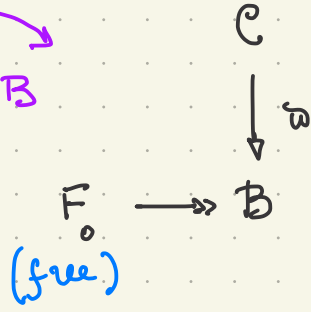 C
B
F₀ B
(free)